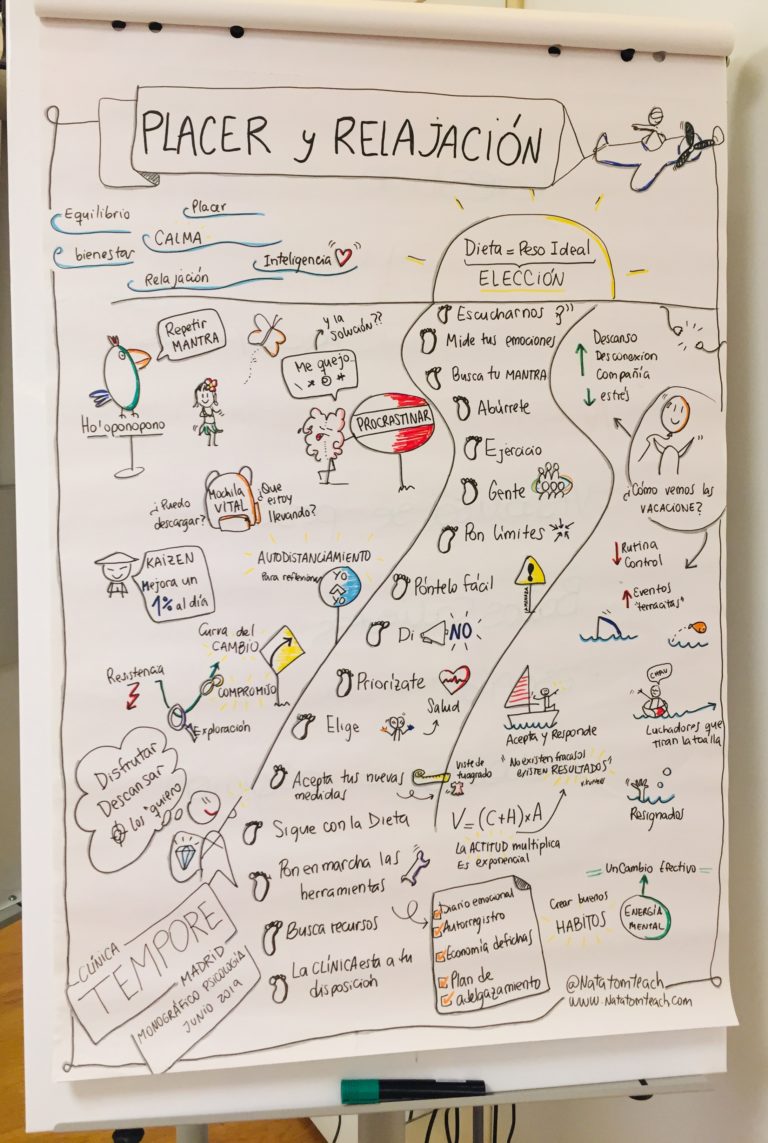 PLACER y RELAJACIÓN
Equilibrio
Placer
CALMA
bienestar
Inteligencia
Relajación
Dieta = Peso Ideal
ELECCIÓN
Repetir
MANTRA
Ho'oponopono
y la
solución??
Me quejo
PROCRASTINAR
Mochila
VITAL
¿Puedo
descargar?
¿Que
estoy
llevando?
KAIZEN
Mejora un
1% al día
AUTODISTANCIAMIENTO
Para reflexionar
YO
YO
Curva del
CAMBIO
Resistencia
COMPROMISO
Exploración
Disfrutar
Descansar
Los "quiero"
Escucharnos
Mide tus emociones
Busca tu MANTRA
Abúrrete
Ejercicio
Gente
Pon Límites
Póntelo fácil
Di NO
Priorízate
Salud
Elige
Acepta tus nuevas
medidas
Sigue con la Dieta
Pon en marcha las
herramientas
Busca recursos
La CLÍNICA esta a tu
disposición
Descanso
Desconexion
Compañía
estrés
¿Cómo vemos las
VACACIONE?
Rutina
Control
Eventos
"terracitas"
CHAU
Luchadores que
tiran la toalla
Resignados
Acepta y Responde
"No existen fracasos
EXISTEN RESULTADOS"
V = (C+H)xA
La ACTITUD multiplica
Es exponencial
Diario emocional
Autorregistro
Economía de fichas
Plan de
adelgazamiento
Un Cambio Efectivo
Crear buenos
HABITOS
ENERGÍA
MENTAL
CLÍNICA
TEMPORE
MADRID
MONOGRÁFICO PSICOLOGÍA
JUNIO 2019
@Natatomteach
www.Natatomteach.com